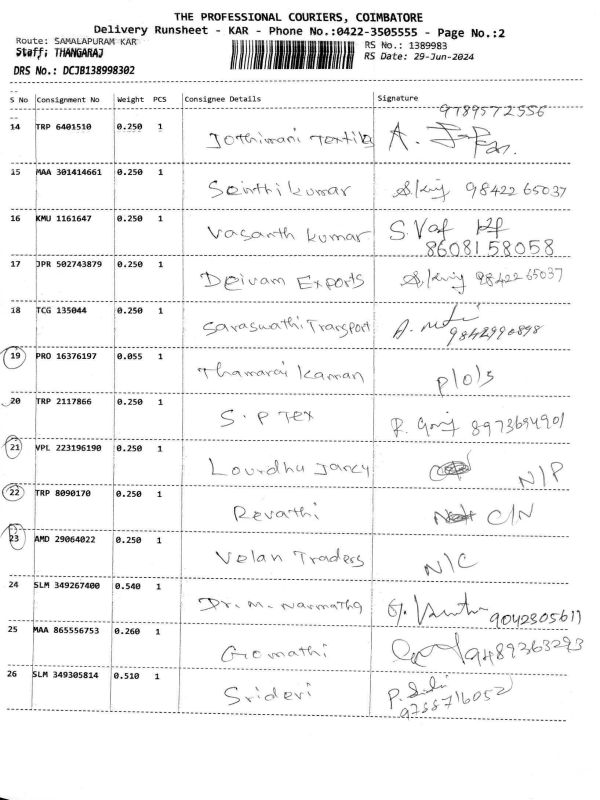 THE PROFESSIONAL COURIERS, COIMBATORE
Delivery Runsheet - KAR - Phone No.:0422-3505555 - Page No.:2
Route: SAMALAPURAM KAR RS No.: 1389983
Staff: THANGARAJ RS Date: 29-Jun-2024
DRS No.: DCJB138998302
S No Consignment No Weight PCS Consignee Details Signature
9789572556
14 TRP 6401510 0.250 1 Jothimani Textile A.
15 MAA 301414661 0.250 1 Senthil kumar 98422 65037
16 KMU 1161647 0.250 1 Vasanth kumar S.
8608158058
17 JPR 502743879 0.250 1 Deivam Exports 98422 65037
18 TCG 135044 0.250 1 Saraswathi Transport A.
9842990898
19 PRO 16376197 0.055 1 Thamarai kannan P/O/S
20 TRP 2117866 0.250 1 S.P Tex 8973694901
21 VPL 223196190 0.250 1 Lourdhu Jancy N/P
22 TRP 8090170 0.250 1 Revathi C/N
23 AMD 29064022 0.250 1 Velan Traders N/C
24 SLM 349267400 0.540 1 Dr. M. Narmatha 9042305611
25 MAA 865556753 0.260 1 Gomathi 9489363293
26 SLM 349305814 0.510 1 Sridevi P.